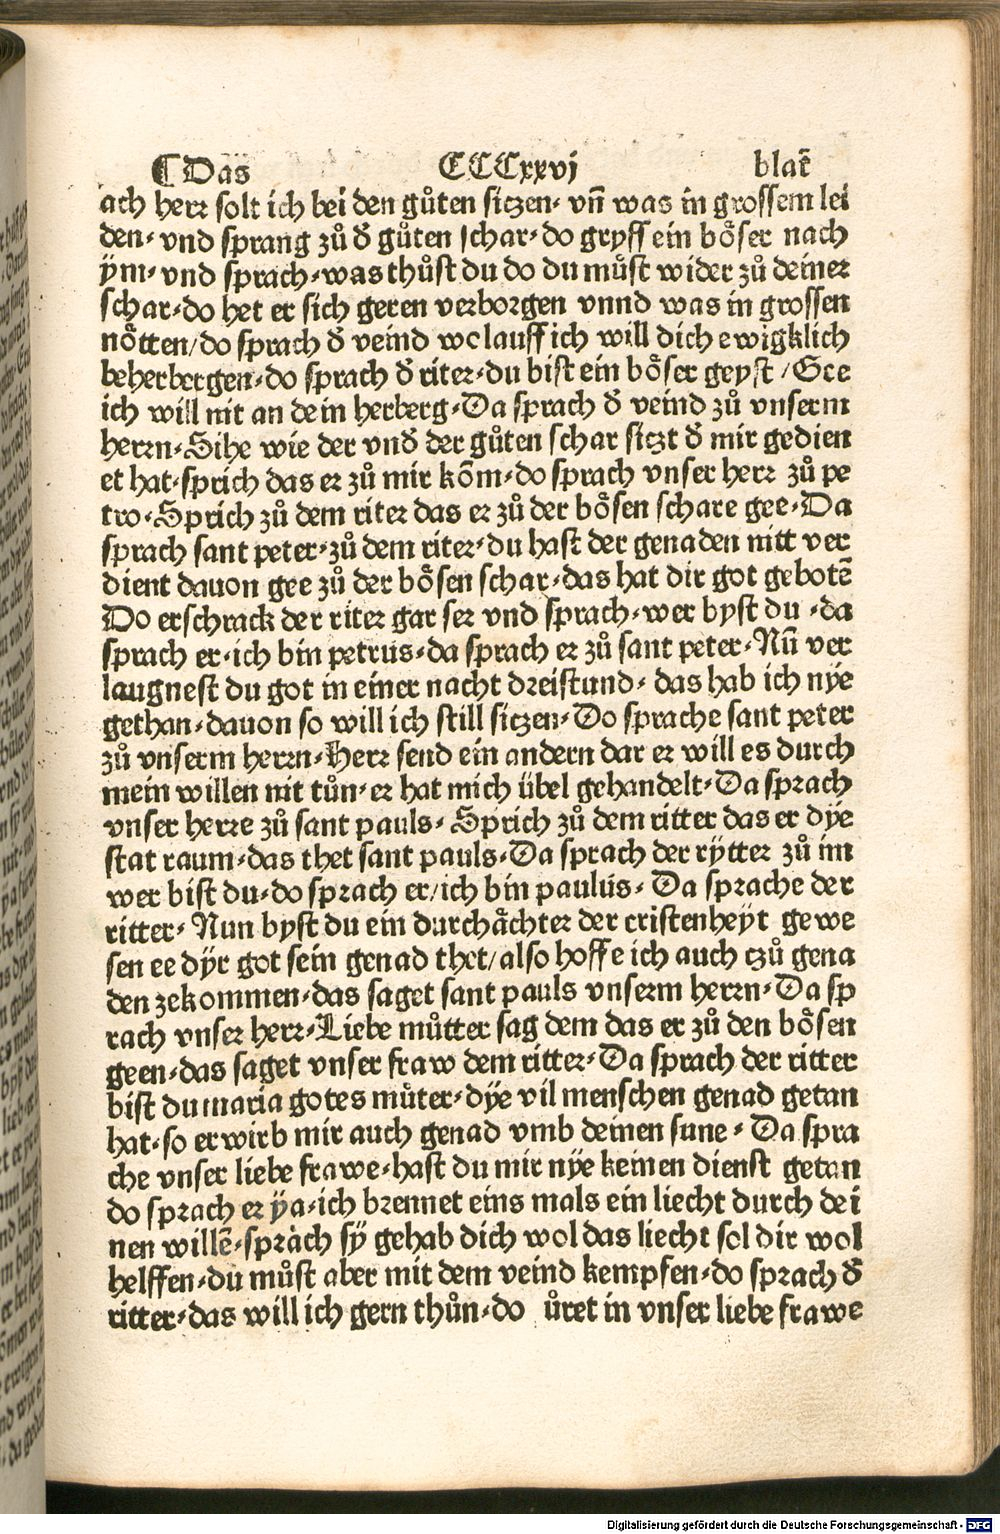 ¶ Das CCCxxvj blat̄
ach herr solt ich bei den gůten sitzen⸗ vn̄ was in grossem lei
den⸗ vnd sprang zů d̕ gůten schar⸗ do gryff ein bȍser nach
ÿm⸗ vnd sprach⸗ was thůst du do du můst wider zů deiner
schar⸗ do het er sich geren verborgen vnnd was in grossen
nȍtten/ do sprach d̕ veind wolauff ich will dich ewigklich
beherbergen⸗ do sprach d̕ riter⸗ du bist ein bȍser geyst / See
ich will nit an dein herberg⸗ Da sprach d̕ veind zů vnserm
herrn⸗ Sihe wie der vnd̕ der gůten schar sitzt d̕ mir gedien
et hat⸗ sprich das er zů mir kōm⸗ do sprach vnser herr zů pe
tro⸗ Sprich zů dem riter das er zů der bȍsen schare gee⸗ Da
sprach sant peter⸗ zů dem riter⸗ du hast der genaden nitt ver
dient dauon gee zů der bȍsen schar⸗ das hat dir got gebotē
Do erschrack der riter gar ser vnd sprach⸗ wer byst du ⸗ da
sprach er⸗ ich bin petrus⸗ da sprach er zů sant peter⸗ Nū ver
laugnest du got in einer nacht dreistund⸗ das hab ich nÿe
gethan⸗ dauon so will ich still sitzen⸗ Do sprache sant peter
zů vnserm herrn⸗ Herr send ein andern dar er will es durch
mein willen nit tůn⸗ er hat mich übel gehandelt⸗ Da sprach
vnser herre zů sant pauls⸗ Sprich zů dem ritter das er dÿe
stat raum⸗ das thet sant pauls⸗ Da sprach der rÿtter zů im
wer bist du⸗ do sprach er/ ich bin paulus⸗ Da sprache der
ritter⸗ Nun byst du ein durchȁchter der cristenheÿt gewe
sen ee dÿr got sein genad thet/ also hoffe ich auch czů gena
den zekommen⸗ das saget sant pauls vnserm herrn⸗ Da sp
rach vnser herr⸗ Liebe můtter sag dem das er zů den bȍsen
geen⸗ das saget vnser fraw dem ritter⸗ Da sprach der ritter
bist du maria gotes můter⸗ dÿe vil menschen genad getan
hat⸗ so erwirb mir auch genad vmb deinen sune ⸗ Da spra
che vnser liebe frawe⸗ hast du mir nÿe keinen dienst getan
do sprach er ÿa⸗ ich brennet eins mals ein liecht durch dei
nen willē⸗ sprach sÿ gehab dich wol das liecht sol dir wol
helffen⸗ du můst aber mit dem veind kempfen⸗ do sprach d̕
ritter⸗ das will ich gern thůn⸗ do ůret in vnser liebe frawe
Digitalisierung gefördert durch die Deutsche Forschungsgemeinschaft - DFG